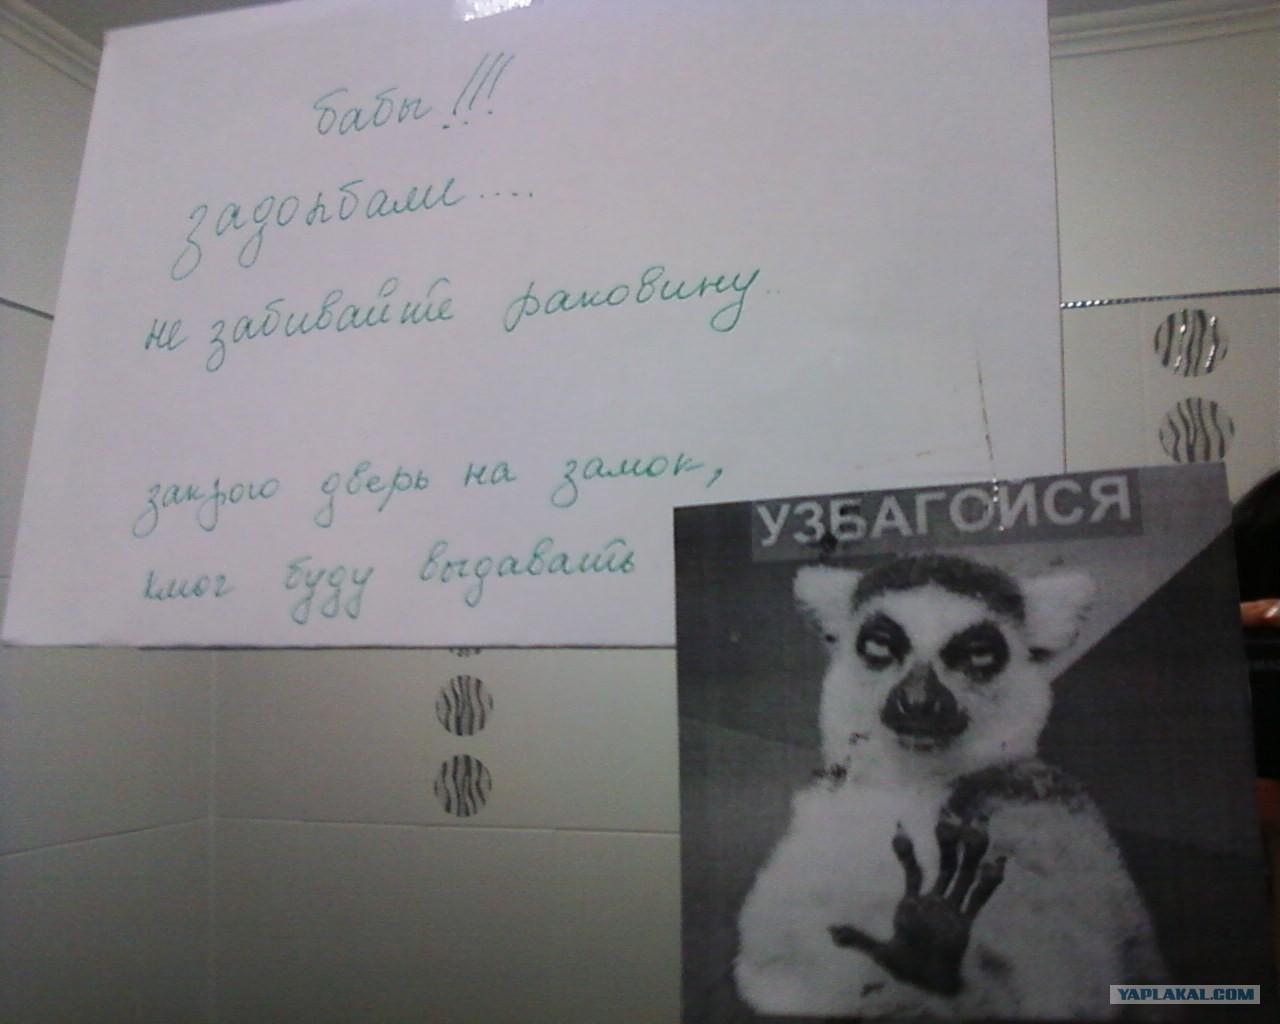 бабы!!!
задолбали....
не забивайте раковину..
закрою дверь на замок,
ключ буду выдавать
УЗБАГОЙСЯ
YAPLAKAL.COM